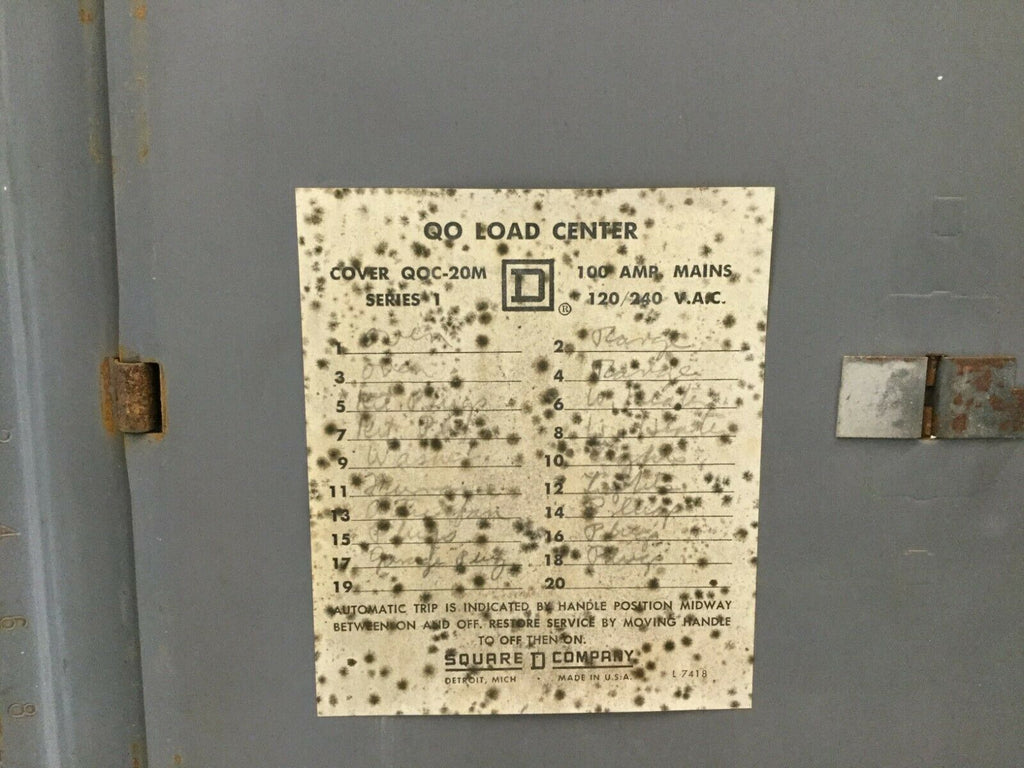 QO LOAD CENTER
COVER QOC-20M 100 AMP. MAINS
SERIES 1 D ® 120/240 V.A.C.
1 Oven 2 Range
3 oven 4 Range
5 6
7 8
9 Washer 10
11 12
13 14
15 Plugs 16 Plugs
17 18 Plugs
19 20
AUTOMATIC TRIP IS INDICATED BY HANDLE POSITION MIDWAY
BETWEEN ON AND OFF. RESTORE SERVICE BY MOVING HANDLE
TO OFF THEN ON.
SQUARE D COMPANY
DETROIT, MICH · MADE IN U.S.A. L 7418
A
6
8